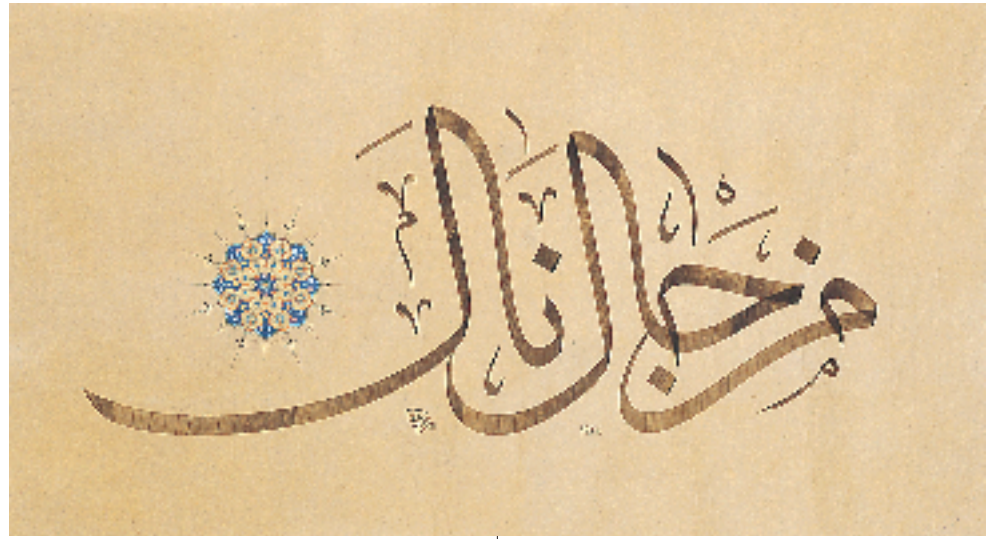 مَنْ جَالَ نَالَ